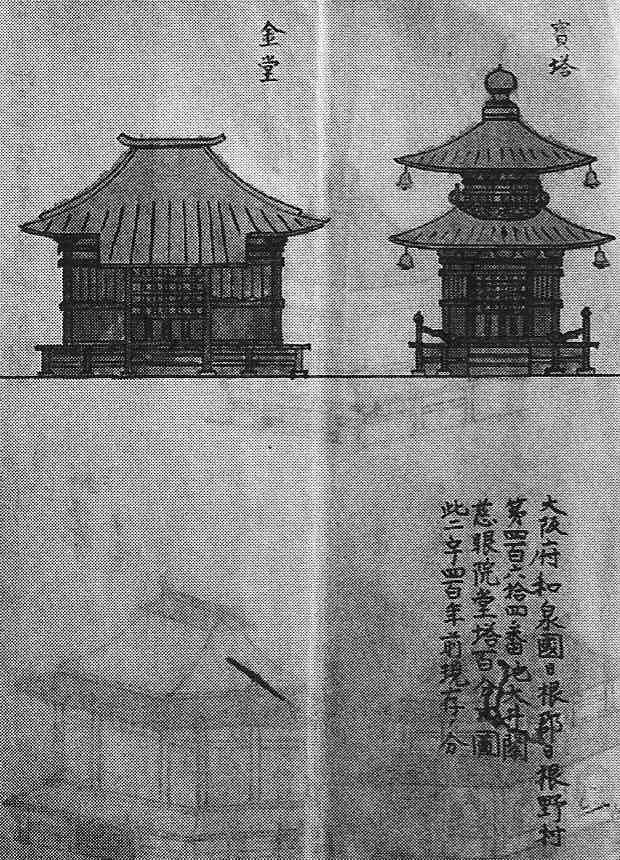 寳塔
金堂
大阪府和泉國日根郡日根野村
第四百六拾四番地大井關
慈眼院堂塔百分 圖
此二宇四百年前現存ノ分